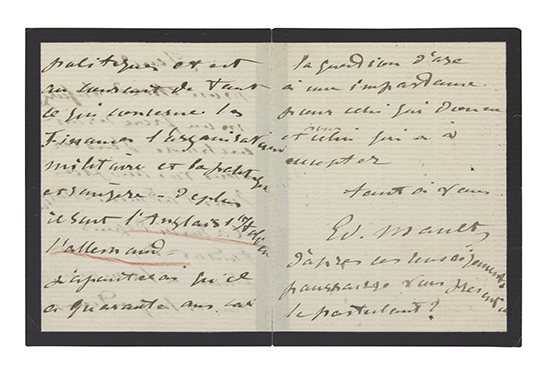 politiques et est
au courant de tout
ce qui concerne les
finances l'organisation
militaire et la politique
etrangère - De plus
il sait l'Anglais l'Italien
l'allemand
J'ajouterai qu'il
a quarante ans car
la question d'age
a une importance
pour celui qui donne
et celui qui a à
accepter
tout à vous
Ed. Manet
d'après ces renseignements
pourrais-je vous présenter
le postulant?